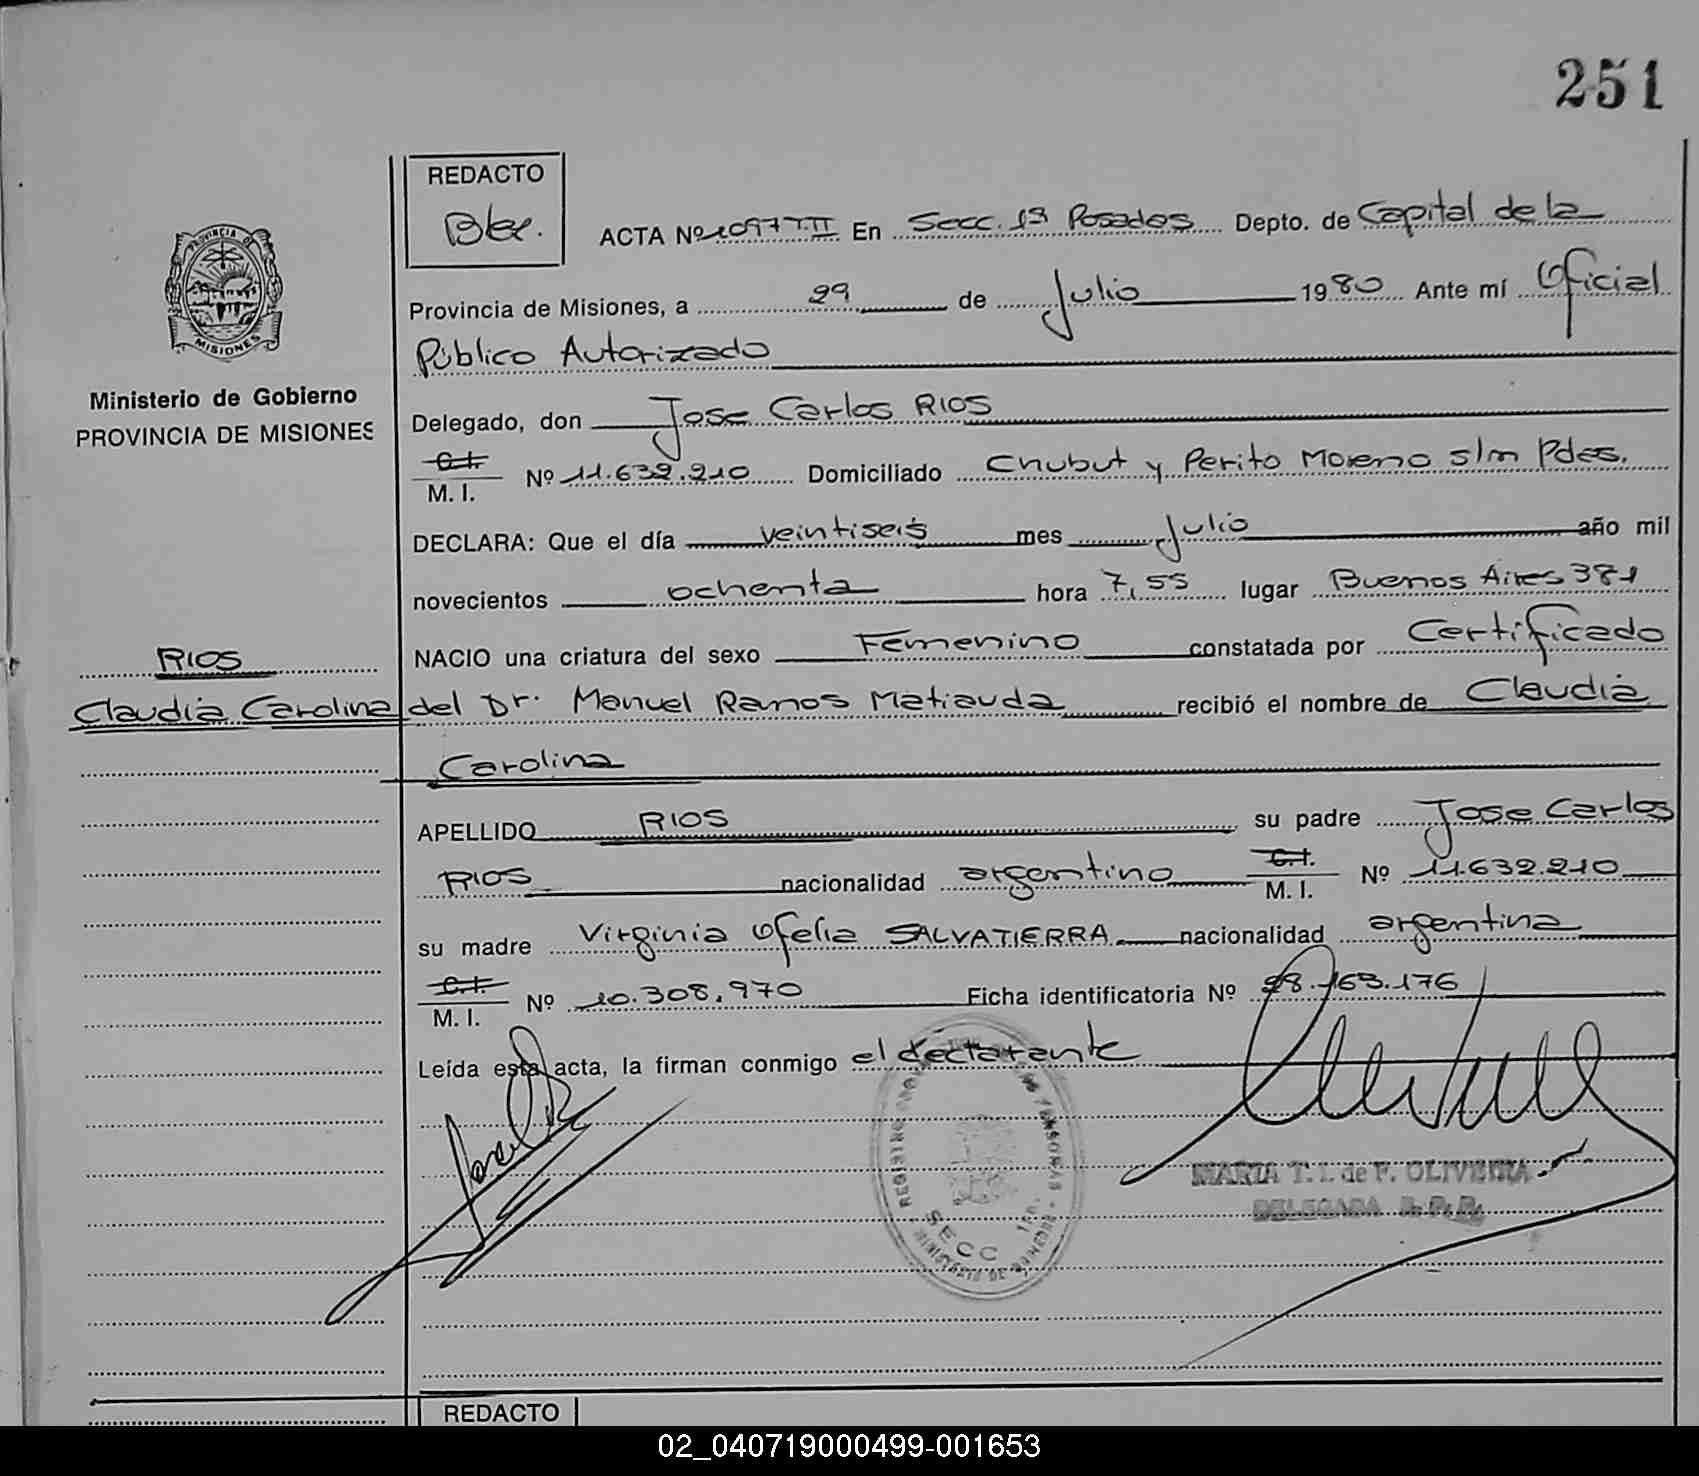 251
REDACTO
ACTA Nº 1097 T.II En Secc. 1ª Posadas Depto. de Capital de la
PROVINCIA DE
MISIONES
Provincia de Misiones, a 29 de Julio 1980 Ante mí Oficial
Público Autorizado
Ministerio de Gobierno
PROVINCIA DE MISIONES
Delegado, don Jose Carlos RIOS
C.I.
M. I. Nº 11.632.210 Domiciliado Chubut y Perito Moreno s/n Pdas.
DECLARA: Que el día veintiseis mes Julio año mil
novecientos ochenta hora 7,55 lugar Buenos Aires 381
RIOS
NACIO una criatura del sexo Femenino constatada por Certificado
Claudia Carolina
del Dr. Manuel Ramos Matiauda recibió el nombre de Claudia
Carolina
APELLIDO RIOS su padre Jose Carlos
RIOS nacionalidad argentino C.I. M. I. Nº 11.632.210
su madre Virginia Ofelia SALVATIERRA nacionalidad argentina
C.I.
M. I. Nº 10.308.970 Ficha identificatoria Nº 28.163.176
Leída esta acta, la firman conmigo el declarante
REGISTRO PERSONAS
SECC 1ra.
MINISTERIO DE GOBIERNO
MARIA T. I. de F. OLIVEIRA
DELEGADA R. P. P.
REDACTO
02_040719000499-001653